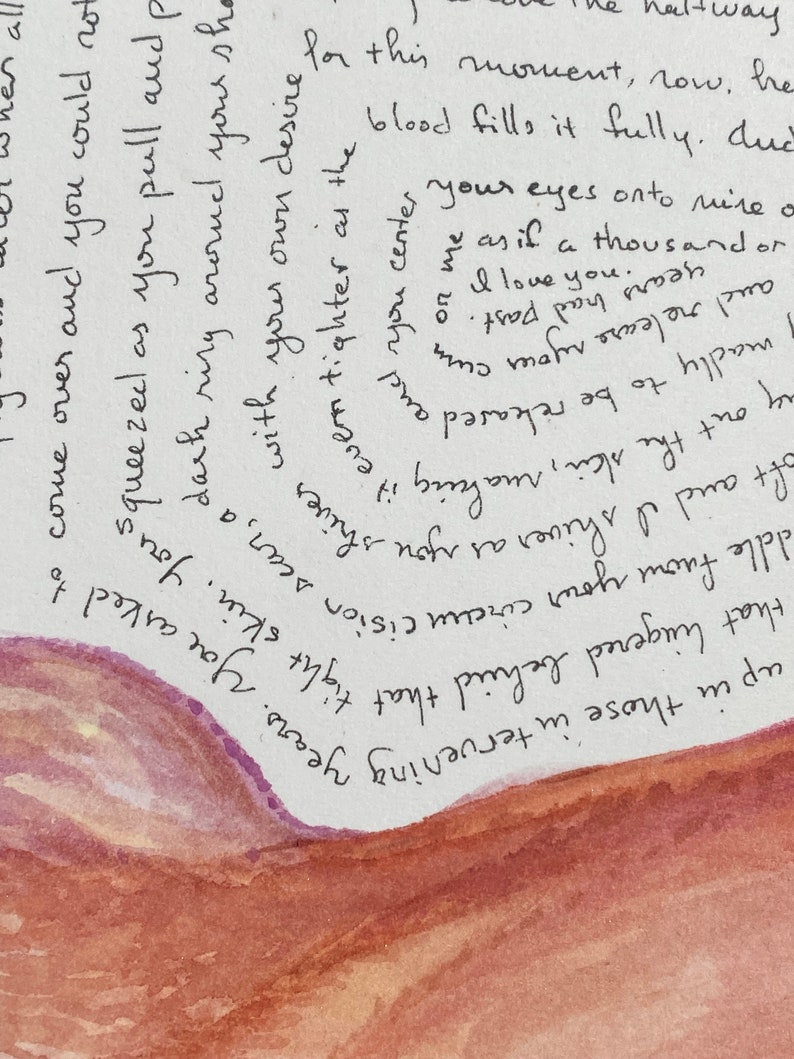 the halfway
up in those intervening years. You asked to come over and you could not
that lingered behind that tight skin. You squeezed as you pull and
from your circumcision scar, a dark ring around your
and I shiver as you shiver with your own desire for this moment, now,
out the skin, making it even tighter as the blood fills it fully.
madly to be released and you center your eyes onto mine
and release your cum on me as if a thousand or
years had past.
I love you.